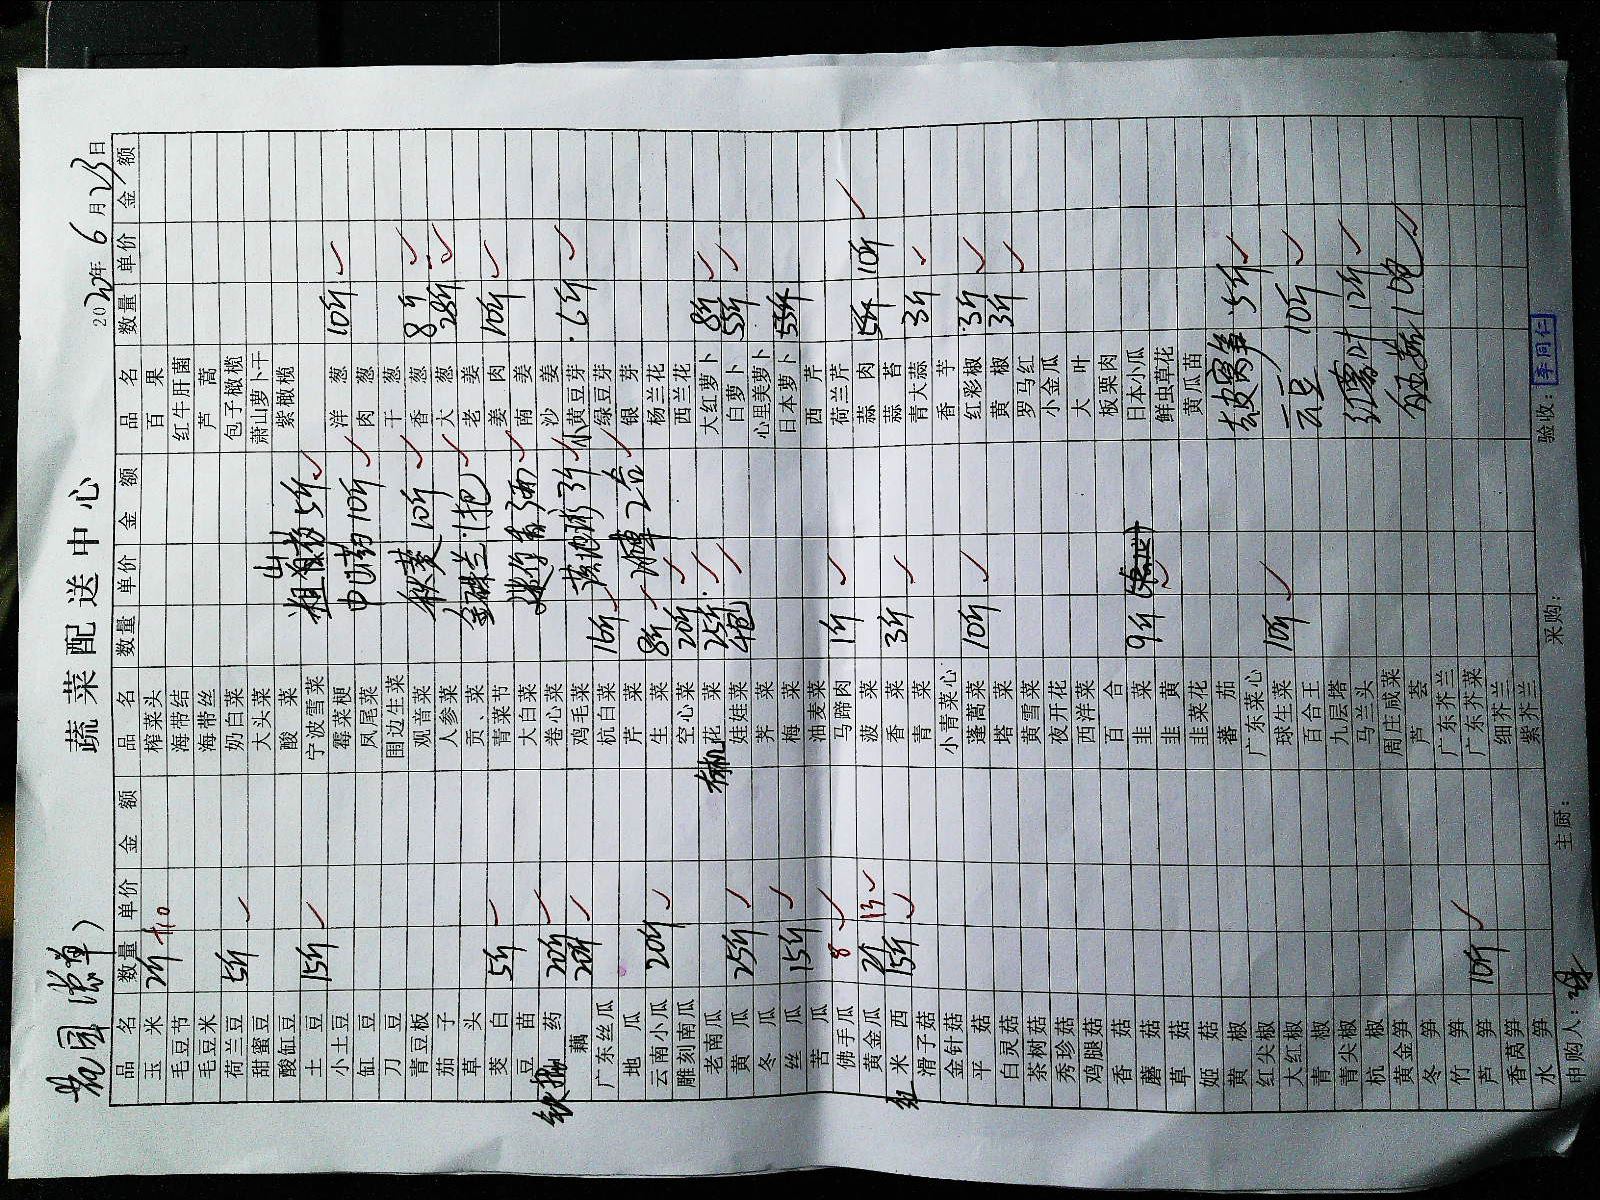 花园（菜单）
蔬菜配送中心
2020年6月23日
品名 数量 单价 金额 品名 数量 单价 金额 品名 数量 单价 金额
玉米 2斤 +10
毛豆节
毛豆米
荷兰豆 5斤
甜蜜豆
酸缸豆
土豆 15斤
小土豆
缸豆
刀豆
青豆板
茄子
草头
茭白 5斤
豆苗
铁棍药 20斤
藕 20斤
广东丝瓜
地瓜
云南小瓜 20斤
雕刻南瓜
老南瓜
黄瓜 25斤
冬瓜
丝瓜 15斤
苦瓜
佛手瓜 8
黄金瓜 2斤 13
红米西 15斤
滑子菇
金针菇
平菇
白灵菇
茶树菇
秀珍菇
鸡腿菇
香菇
蘑菇
草菇
姬菇
黄椒
红尖椒
大红椒
青椒
青尖椒
杭椒
黄金笋
冬笋
竹笋
芦笋 10斤
香莴笋
水笋
榨菜头
海带结
海带丝
奶白菜
大头菜
酸菜
宁波雪菜
霉菜梗
凤尾菜
围边生菜
观音菜
人参菜
贡、菜
青菜节
大白菜
卷心菜
鸡毛菜
杭白菜 16斤
芹菜
生菜 8斤
空心菜 20斤
有机花菜 25斤
娃娃菜 4包
荠菜
梅菜
油麦菜
马蹄肉 1斤
菠菜
香菜 3斤
青菜
小青菜心
蓬蒿菜 10斤
塔菜
黄雪菜
夜开花
西洋菜
百合
韭菜 9斤
韭黄
韭菜花
番茄
广东菜心
球生菜 10斤
百合王
九层塔
马兰头
周庄咸菜
芦荟
广东芥兰
广东芥菜
细芥兰
紫芥兰
5斤
10斤
秋葵 10斤
1把
3斤
2盒
百果
红牛肝菌
芦蒿
包子橄榄
萧山萝卜干
紫橄榄
洋葱 10斤
肉葱
干葱
香葱 8斤
大葱 28斤
老姜
姜肉 10斤
南姜
沙姜
小黄豆芽 6斤
绿豆芽
银芽
杨兰花
西兰花
大红萝卜 8斤
白萝卜 55斤
心里美萝卜
日本萝卜
西芹
荷兰芹
蒜肉 10斤
蒜苔
青大蒜 3斤
香芋
红彩椒 3斤
黄椒 3斤
罗马红
小金瓜
大叶
板栗肉
日本小瓜
鲜虫草花
黄瓜苗
去皮窝笋 5斤
云豆 10斤
12斤
1包
申购人： 主厨： 采购： 验收：李同仁